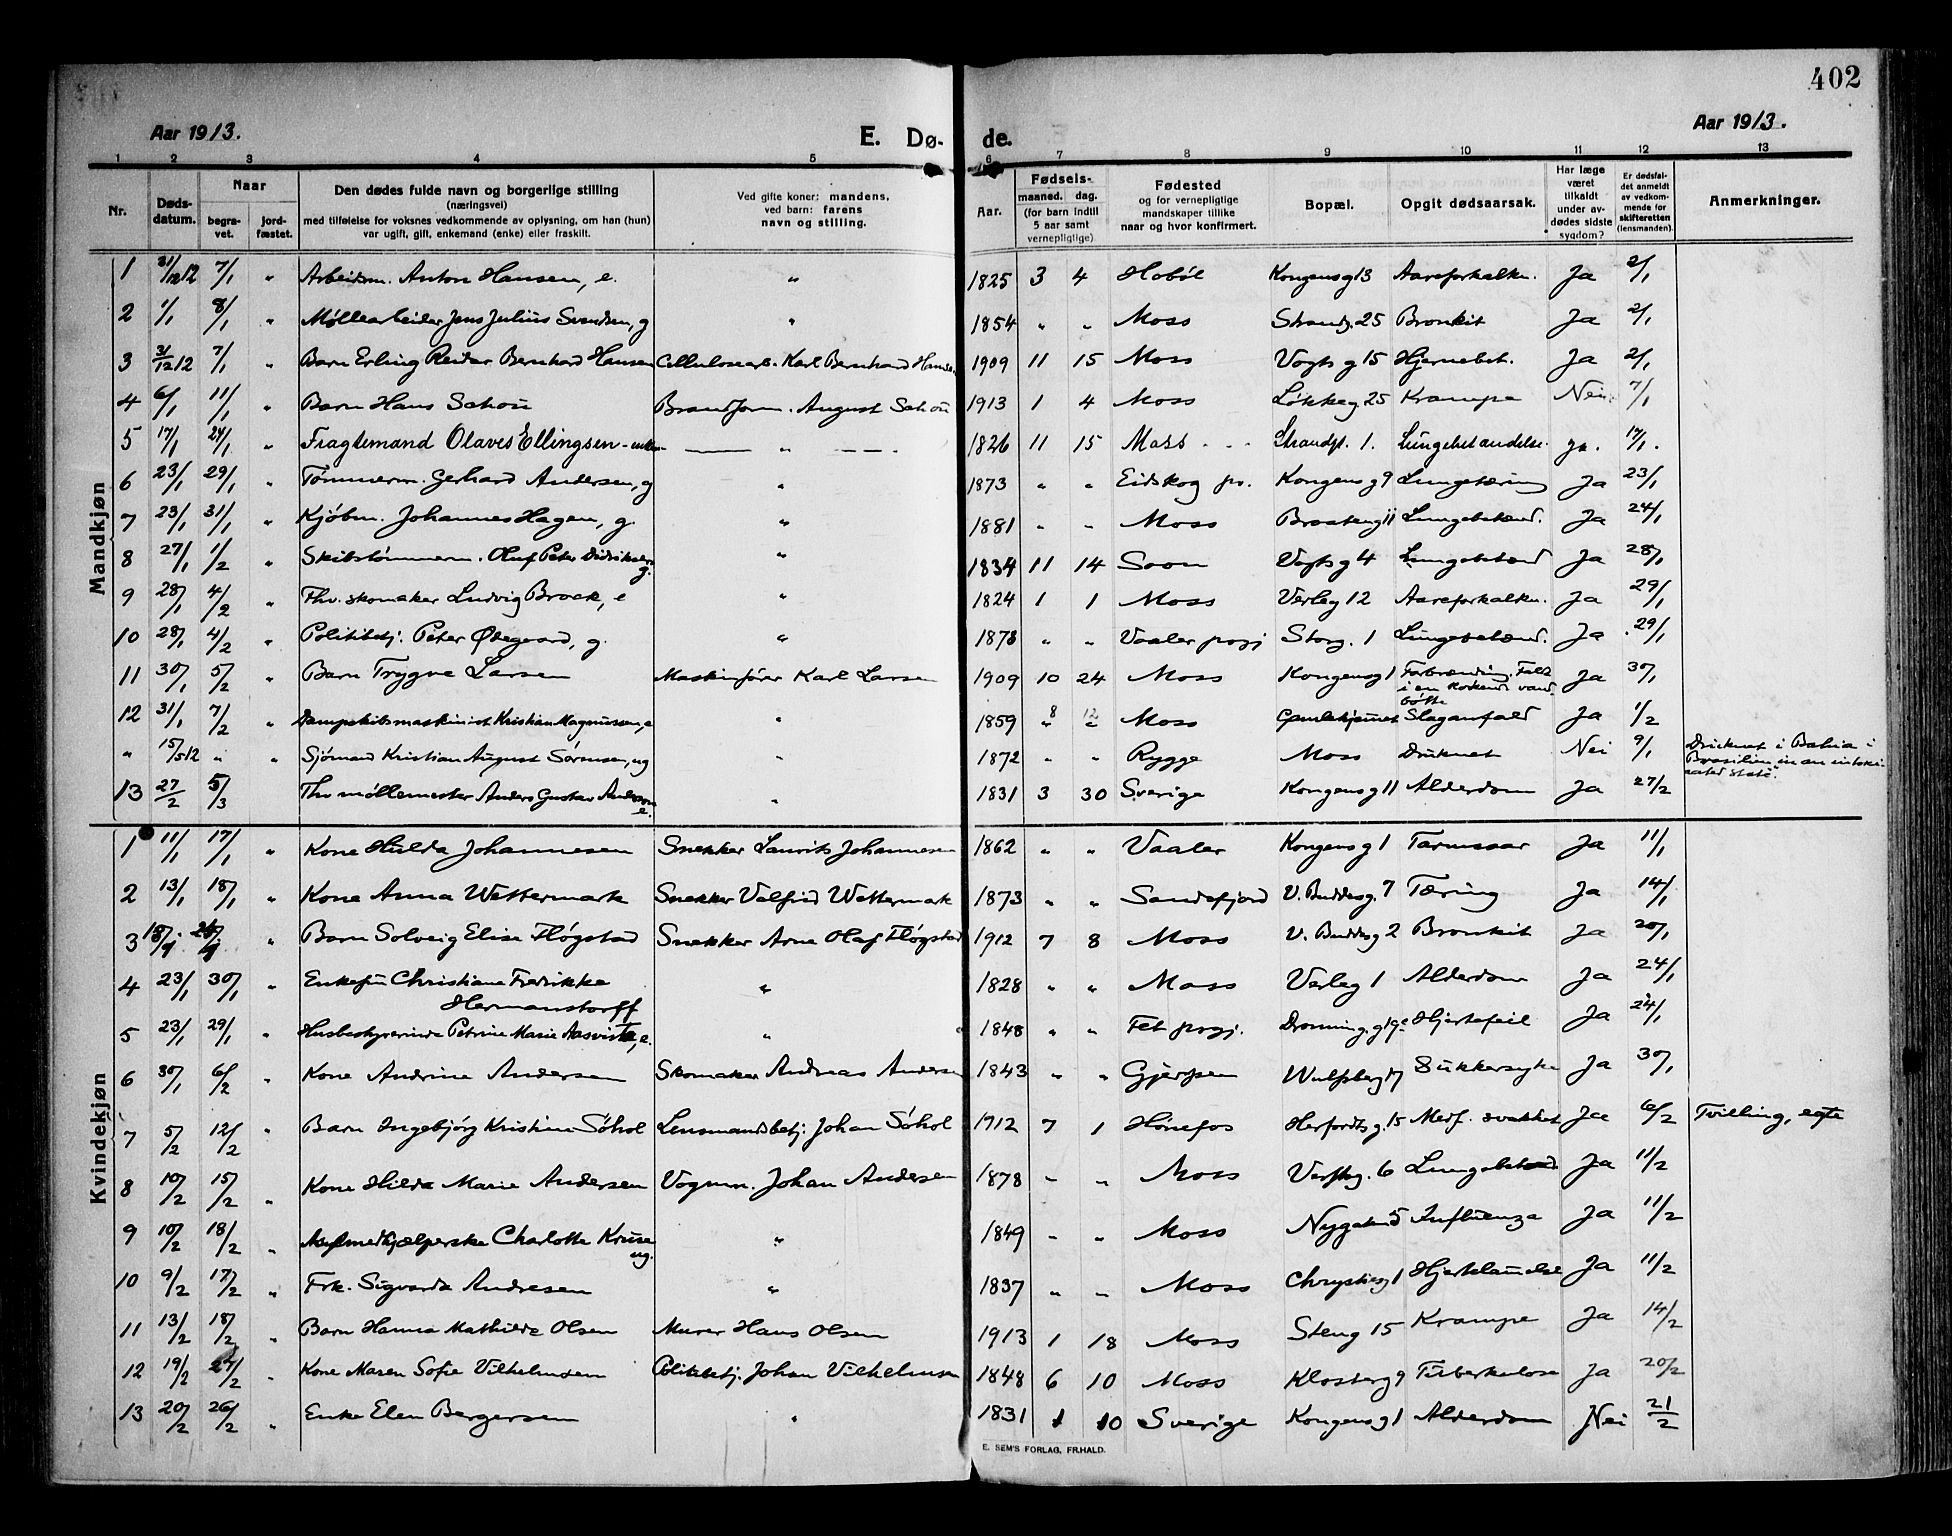 402
Aar 1913. E. Dø- de. Aar 1913.
1 2 3 4 5 6 7 8 9 10 11 12 13
Nr.
Døds-
datum.
Naar
begra-
vet.
jord-
fæstet.
Den dødes fulde navn og borgerlige stilling
(næringsvei)
med tilføielse for voksnes vedkommende av oplysning, om han (hun)
var ugift, gift, enkemand (enke) eller fraskilt.
Ved gifte koner: mandens,
ved barn: farens
navn og stilling.
Aar.
Fødsels-
maaned. dag.
(for barn indtil
5 aar samt
vernepligtige)
Fødested
og for vernepligtige
mandskaper tillike
naar og hvor konfirmert.
Bopæl.
Opgit dødsaarsak.
Har læge
været
tilkaldt
under av-
dødes sidste
sygdom?
Er dødsfal-
det anmeldt
av vedkom-
mende for
skifteretten
(lensmanden).
Anmerkninger.
Mandkjøn
1 31/12 12 7/1 " Arbeidsm. Anton Hansen, e. " 1825 3 4 Hobøl Kongensg 13 Aareforkalkn. Ja 2/1
2 1/1 8/1 " Møllearbeider Jens Julius Svendsen, g " 1854 " " Moss Strandg. 25 Bronkit Ja 2/1
3 31/12 12 7/1 " Barn Erling Reidar Bernhard Hansen Cellulosearb. Karl Bernhard Hansen 1909 11 15 Moss Vogts g 15 Hjernebet. Ja 2/1
4 6/1 11/1 " Barn Hans Schou Brandform. August Schou 1913 1 4 Moss Løkkeg 25 Krampe Nei 7/1
5 17/1 24/1 " Fragtemand Olaves Ellingsen - enkem- " 1826 11 15 Moss Strandgt. 1. Lungebetændelse. ja. 17/1.
6 23/1 29/1 " Tømmerm. Gerhard Andersen, g " 1873 " " Eidskog pr. Kongens g 9 Lungetæring Ja 23/1
7 23/1 31/1 " Kjøbm. Johannes Hagen, g. " 1881 " " Moss Brosteng 11 Lungebetænd. Ja 24/1
8 27/1 1/2 " Skibstømmerm. Oluf Peter Didriksen " 1834 11 14 Soon Vogts g 4 Lungebetænd Ja 28/1
g.
9 28/1 4/2 " Fhv. skomaker Ludvig Brock, e " 1824 1 1 Moss Verleg 12 Aareforkalkn. Ja 29/1
10 28/1 4/2 " Politibetj. Peter Ødegaard, g. " 1878 " " Vaaler prgj Storg. 1 Lungebetænd. Ja 29/1
11 30/1 5/2 " Barn Trygve Larsen Maskinfører Karl Larsen 1909 10 24 Moss Kongensg 1 Forbrænding. Faldt Ja 30/1
i en kokende vand
bøtte
12 31/1 7/2 " Dampskibsmaskinist Kristian Magnussen, e " 1859 8 12 Moss Gamlehjemmet Slaganfald Ja 1/2
" 15/5 12 " " Sjømand Kristian August Sørensen, ug 1872 " " Rygge Moss Druknet Nei 9/1 Druknet i Bahia i
Brasilien "in an intoxi
cated state".
13 27/2 5/3 Fhv møllemester Anders Gustav Anderson " 1831 3 30 Sverige Kongensg 11 Alderdom Ja 27/2
e.
Kvindekjøn
1 11/1 17/1 " Kone Hulda Johannesen Snekker Laurits Johannesen 1862 " " Vaaler Kongens g 1 Tarmsaar Ja 11/1
2 13/1 18/1 " Kone Anna Wettermark Snekker Valfrid Wettermark 1873 " " Sandefjord V. Buddesg. 7 Tæring Ja 14/1
3 " Barn Solveig Elise Fløgstad Snekker Arne Olaf Fløgstad 1912 7 8 Moss V. Buddesg 2 Bronkit Ja 20/1
4 23/1 30/1 " Enkefru Christiane Fredrikke " 1828 " " Moss Verleg 1 Alderdom Ja 24/1
Hermanstorff
5 23/1 29/1 " Husbestyrerinde Petrine Marie Aasvista, e. " 1848 " " Fet prgj. Dronning. g 19c Hjertefeil Ja 24/1
6 30/1 6/2 " Kone Andrine Andersen Skomaker Andreas Andersen 1843 " " Gjerpen Wulfsberg 17 Sukkersyke Ja 30/1
7 5/2 12/2 " Barn Ingebjørg Kristine Søhol Lensmandsbetj. Johan Søhol 1912 7 1 Hønefos Herfordts g. 15 Medf. svakhet Ja 6/2 Tvilling, egte
8 10/2 15/2 " Kone Hilda Marie Andersen Vognm. Johan Andersen 1878 " " Moss Verftsg. 6 Lungebetænd Ja 11/2
9 10/2 18/2 " Charlotte Kruse " 1849 " " Moss 5 Influenza Ja 11/2
ug.
10 9/2 17/2 " Frk. Sigvarda Andresen " 1837 " " Moss Chrystiesg 1 Hjertelammelse Ja 11/2
11 13/2 18/2 " Barn Hanna Mathilde Olsen Murer Hans Olsen 1913 1 18 Moss Steng 15 Krampe Ja 14/2
12 19/2 " Kone Maren Sofie Vilhelmsen Politibetj. Johan Vilhelmsen 1848 6 10 Moss Klosterg 9 Tuberkulose Ja 20/2
13 20/2 26/2 " Enke Elen Bergersen " 1831 1 10 Sverige Kongens g 1 Alderdom Nei 21/2
E. SEM'S FORLAG, FR.HALD.